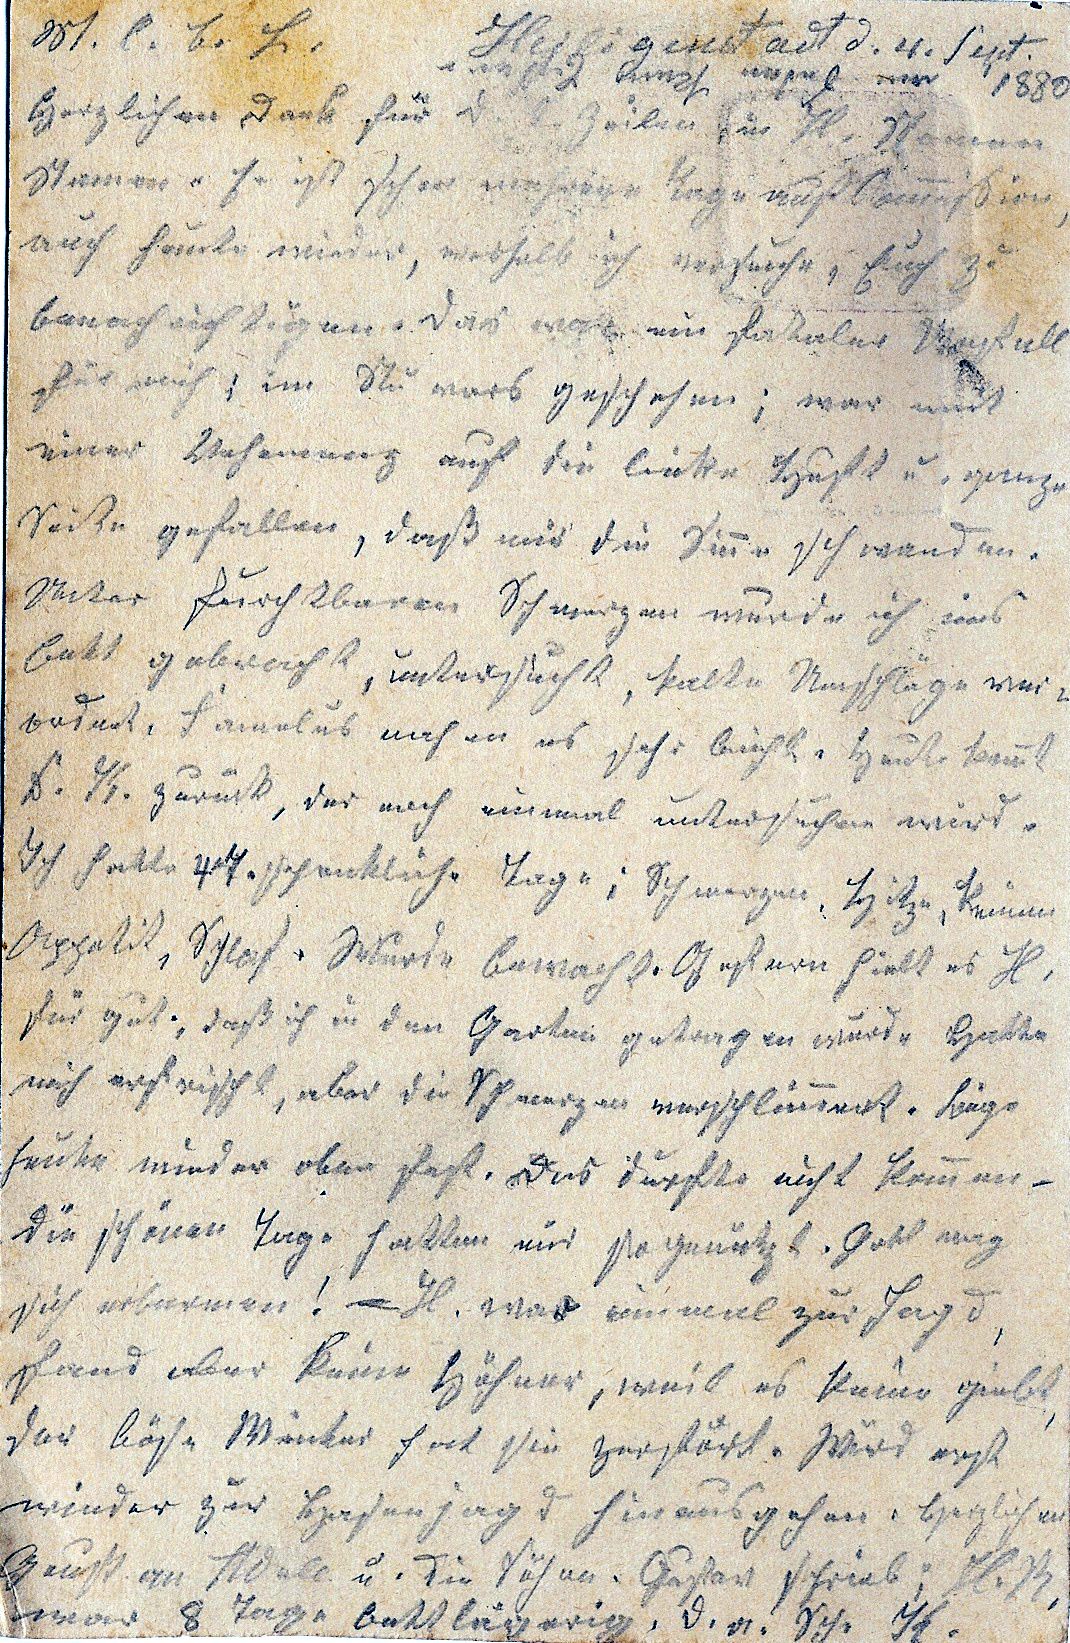 M. l. b. L. Heiligenstadt d. 4. Sept.
1880
Herzlichen Dank für d. l. Zeilen in H. Namen
Namen. H. ist schon mehrere Tage auf Commission,
auch heute wieder, weshalb ich versuche, Euch zu
benachrichtigen. Das war ein fataler Vorfall
für mich; im Nu wars geschehen; war mit
einer Vehemenz auf die linke Hüft u. ganze
Seite gefallen, daß mir die Sinne schwanden.
Unter furchtbaren Schmerzen wurde ich ins
Bett gebracht, untersucht, kalte Umschläge ver-
ordnet. Famulus nahm es sehr leicht. Heute kommt
D. zurück, der noch einmal untersuchen wird.
Ich hatte schreckliche Tage; Schmerzen, Hitze, keinen
Appetit, Schlaf. Wurde bewacht. Gestern hielt es H.
für gut, daß ich in den Garten getragen wurde. Hatte
mich erfrischt, aber die Schmerzen verschlimmert. Liege
heute wieder oben fest. Das durfte nicht kommen –
die schönen Tage hatten wir so genützt. Gott mag
sich erbarmen! – H. war einmal zur Jagd,
fand aber keine Hühner, weil es keine giebt,
der böse Winter hat sie zerstört. Wird erst
wieder zur Hasenjagd hinausgehen. Herzlichen
Gruß an Adele u. die Söhne. Gustav schrieb;
war 8 Tage bettlägerig. D. a. Sch.